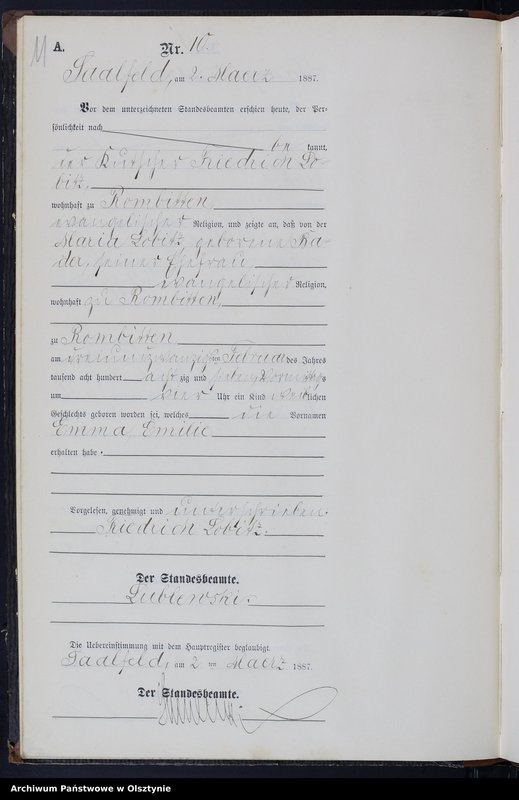 11
A.
Nr. 10.
Saalfeld, am 2. Maerz 1887.
Vor dem unterzeichneten Standesbeamten erschien heute, der Per-
sönlichkeit nach
be kannt,
der Kutscher Friedrich Lo-
bitz,
wohnhaft zu Rombitten,
evangelischer Religion, und zeigte an, daß von der
Maria Lobitz geborene Ka-
der, seiner Ehefrau,
evangelischer Religion,
wohnhaft zu Rombitten,
zu Rombitten
am dreiundzwanzigsten Februar des Jahres
tausend acht hundert achtzig und sieben Vormittags
um vier Uhr ein Kind weiblichen
Geschlechts geboren worden sei, welches die Vornamen
Emma Emilie
erhalten habe.
Vorgelesen, genehmigt und unterschrieben.
Friedrich Lobitz.
Der Standesbeamte.
Lublewski.
Die Uebereinstimmung mit dem Hauptregister beglaubigt.
Saalfeld, am 2 ten Maerz 1887.
Der Standesbeamte.
Archiwum Państwowe w Olsztynie